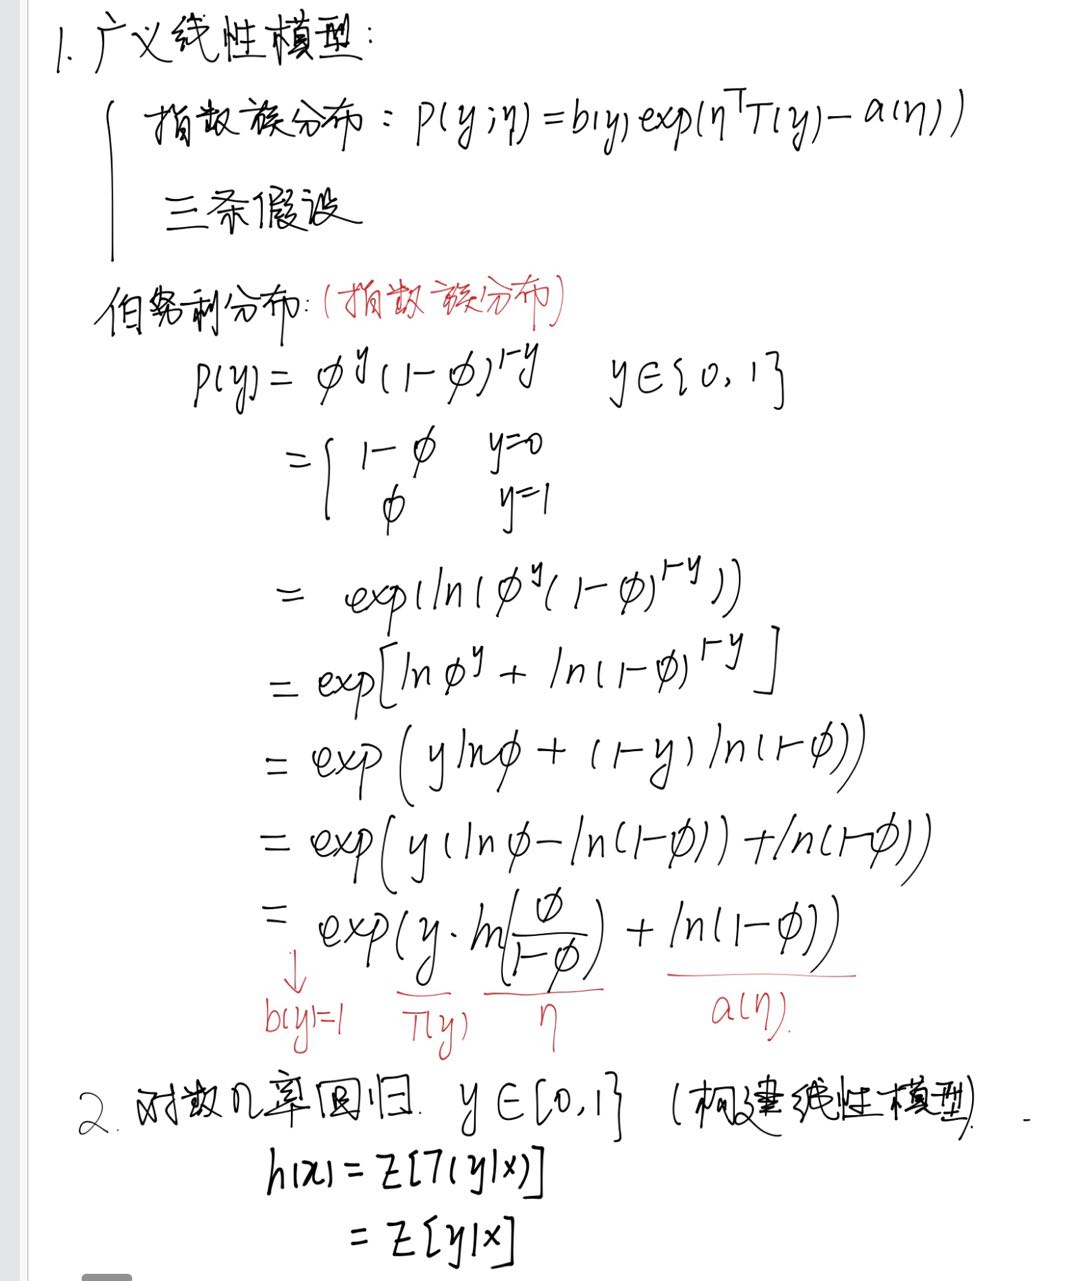 1. 广义线性模型:
指数族分布: p(y;η)=b(y)exp(η^T T(y)-a(η))
三条假设
伯努利分布:(指数族分布)
p(y)= φ^y(1-φ)^{1-y} y∈{0,1}
={ 1-φ y=0
φ y=1
= exp(ln(φ^y(1-φ)^{1-y}))
= exp[lnφ^y + ln(1-φ)^{1-y}]
= exp(ylnφ + (1-y)ln(1-φ))
= exp(y(lnφ-ln(1-φ))+ln(1-φ))
= exp(y·ln(φ/(1-φ)) + ln(1-φ))
↓
b(y)=1 T(y) η a(η).
2. 对数几率回归. y∈{0,1} (构建线性模型).
h(x)= Z[T(y|x)]
= Z[y|x]